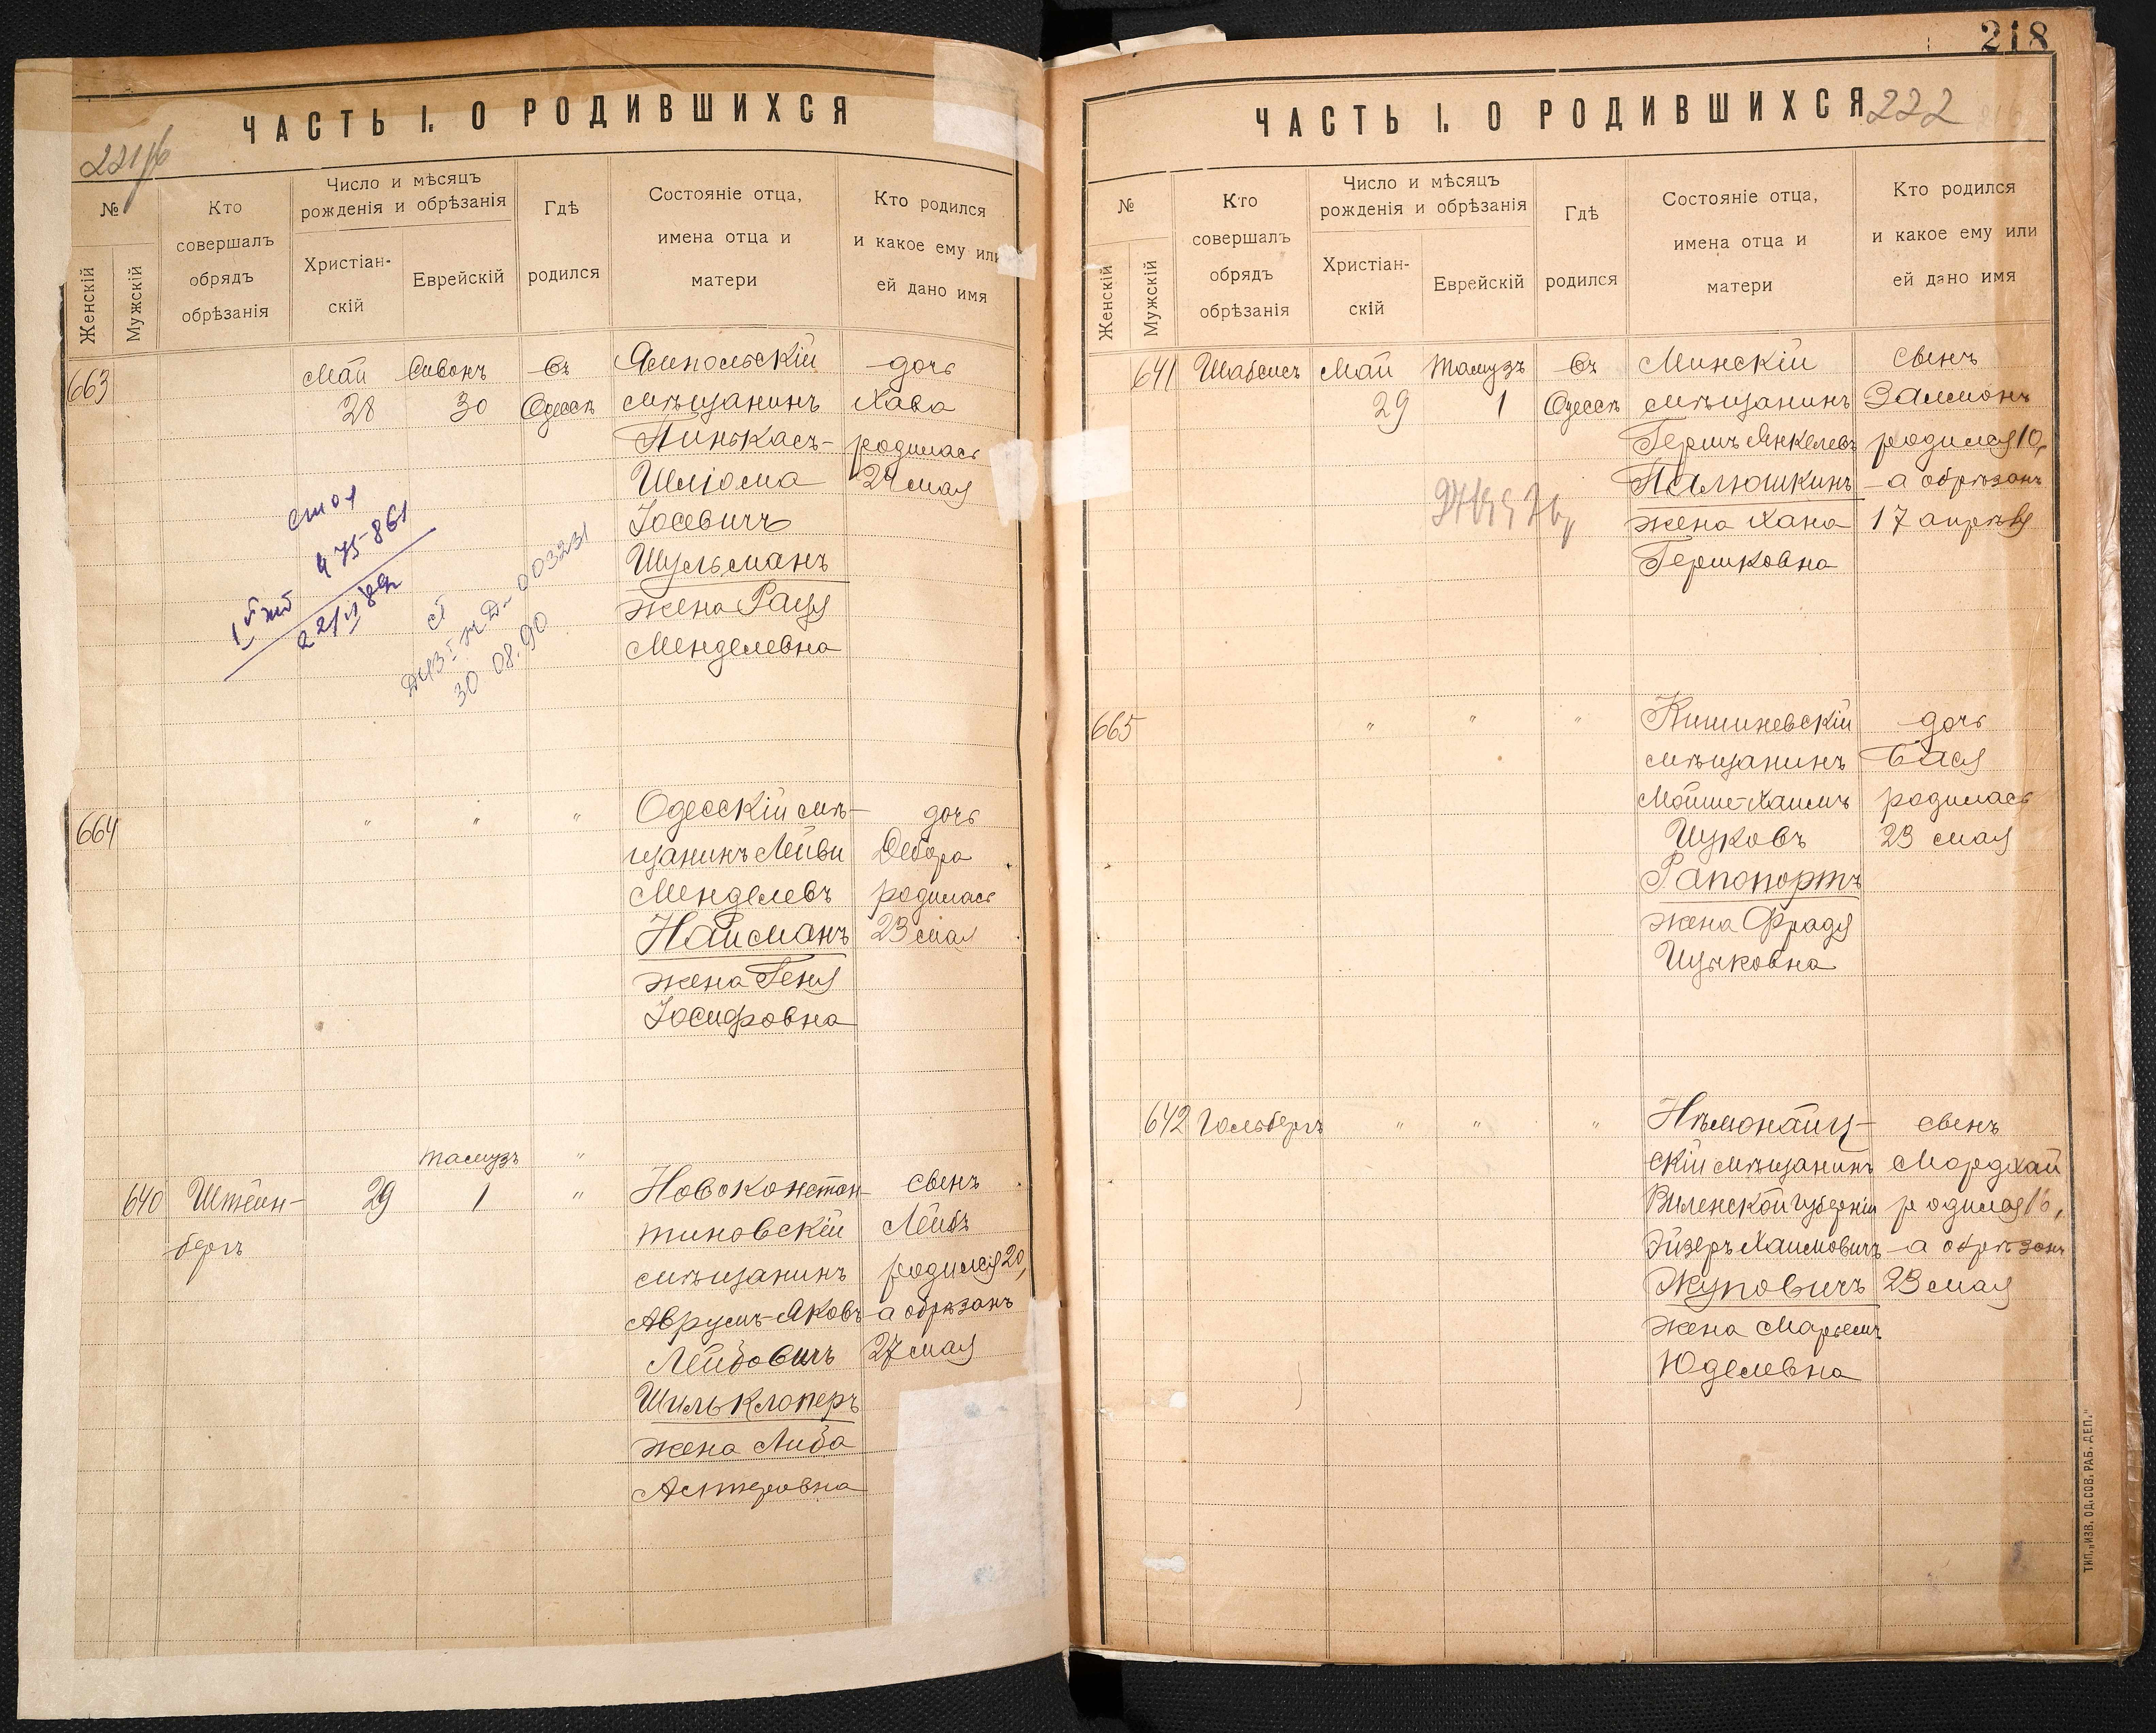 ЧАСТЬ I. О РОДИВШИХСЯ
№
Женскій
Мужскій
Кто
совершалъ
обрядъ
обрѣзанія
Число и мѣсяцъ
рожденія и обрѣзанія
Христіан-
скій
Еврейскій
Гдѣ
родился
Состояніе отца,
имена отца и
матери
Кто родился
и какое ему или
ей дано имя
663 Май Сивонъ Въ Ямпольскій дочь
28 30 Одессѣ мѣщанинъ Хава
Пинькасъ- родилась
Шліома 24 мая
Іосевичъ
Шульманъ
жена Рася
Менделевна
475-861
30 08.90
664 " " " Одесскій мѣ- дочь
щанинъ Лейви Дебора
Менделевъ родилась
Найманъ 23 мая
жена Геня
Іосифовна
Тамузъ "
640 Штейн- 29 1 " Новоконстан- сынъ
бергъ тиновскій Лейбъ
мѣщанинъ родился 20,
Аврумъ-Яковъ а обрѣзанъ
Лейбовичъ 27 мая
Шильклоперъ
жена Либа
Алтеровна
218
ЧАСТЬ I. О РОДИВШИХСЯ 222
№
Женскій
Мужскій
Кто
совершалъ
обрядъ
обрѣзанія
Число и мѣсяцъ
рожденія и обрѣзанія
Христіан-
скій
Еврейскій
Гдѣ
родился
Состояніе отца,
имена отца и
матери
Кто родился
и какое ему или
ей дано имя
641 Шабсисъ Май Тамузъ Въ Минскій сынъ
29 1 Одессѣ мѣщанинъ Залмонъ
Гершъ Янкелевъ родился 10,
Палюшкинъ а обрѣзанъ
жена Хана 17 апрѣля
Гершковна
665 " " " Кишиневскій дочь
мѣщанинъ Бася
Мойше-Хаимъ родилась
Ицковъ 23 мая
Рапопортъ
жена Фрадя
Ицковна
642 Гольбергъ " " " Нѣмонайц- сынъ
скій мѣщанинъ Мордхай
Виленской губерніи родился 16,
Эйзеръ Хаимовичъ а обрѣзанъ
Жуповичъ 23 мая
жена Марьемъ
Юделевна
ТИП. „ИЗВ. ОД. СОВ. РАБ. ДЕП."